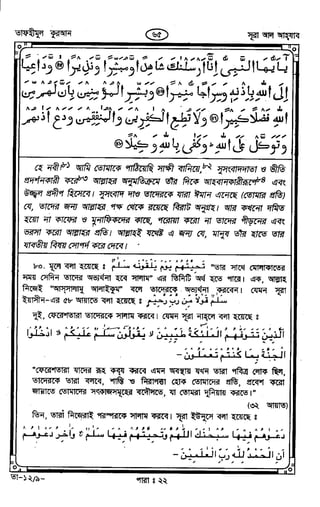 তাফহীমুল কুরআন
৬৫
সূরা আল আহযাব
يٰٓاَيُّهَا النَّبِىُّ اِنَّآ اَرْسَلْنٰكَ شَاهِدًا وَّمُبَشِّرًا وَّنَذِيْرًا ۝ وَّدَاعِيًا
اِلَى اللّٰهِ بِاِذْنِهٖ وَسِرَاجًا مُّنِيْرًا ۝ وَبَشِّرِ الْمُؤْمِنِيْنَ بِاَنَّ لَهُمْ مِّنَ
اللّٰهِ فَضْلًا كَبِيْرًا ۝ وَلَا تُطِعِ الْكٰفِرِيْنَ وَالْمُنٰفِقِيْنَ وَدَعْ اَذٰىهُمْ
وَتَوَكَّلْ عَلَى اللّٰهِ ۚ وَكَفٰى بِاللّٰهِ وَكِيْلًا ۝
হে নবী! আমি তোমাকে পাঠিয়েছি সাক্ষী বানিয়ে, সুসংবাদদাতা ও ভীতি
প্রদর্শনকারী করে আল্লাহর অনুমতিক্রমে তাঁর দিকে আহবানকারীরূপে এবং
উজ্জ্বল প্রদীপ হিসেবে। সুসংবাদ দাও তাদেরকে যারা ঈমান এনেছে (তোমার প্রতি)
যে, তাদের জন্য আল্লাহর পক্ষ থেকে রয়েছে বিরাট অনুগ্রহ। আর কখনো দমিত
হয়ো না কাফের ও মুনাফিকদের কাছে, পরোয়া করো না তাদের পীড়নের এবং
ভরসা করো আল্লাহর প্রতি। আল্লাহই যথেষ্ট এ জন্য যে, মানুষ তাঁর হাতে তার
যাবতীয় বিষয় সোপর্দ করে দেবে।
৮০. মূলে বলা হয়েছে : تَحِيَّتُهُمْ يَوْمَ يَلْقَوْنَهٗ سَلٰمٌ "তার সাথে মোলাকাতের
সময় সেদিন তাদের অভ্যর্থনা হবে সালাম" এর তিনটি অর্থ হতে পারে। এক, আল্লাহ
নিজেই "আস্‌সালামু আলাইকুম" বলে তাদেরকে অভ্যর্থনা করবেন। যেমন সূরা
ইয়াসীন-এর ৫৮ আয়াতে বলা হয়েছে : سَلٰمٌ قَوْلًا مِّنْ رَّبٍّ رَّحِيْمٍ
দুই, ফেরেশতারা তাদেরকে সালাম করবে। যেমন সূরা নাহলে বলা হয়েছে :
اَلَّذِيْنَ تَتَوَفّٰهُمُ الْمَلٰٓئِكَةُ طَيِّبِيْنَ لا يَقُوْلُوْنَ سَلٰمٌ عَلَيْكُمُ لا ادْخُلُوا
الْجَنَّةَ بِمَا كُنْتُمْ تَعْمَلُوْنَ -
"ফেরেশতারা যাদের রূহ কবয করবে এমন অবস্থায় যখন তারা পবিত্র লোক ছিল,
তাদেরকে তারা বলবে, শান্তি ও নিরাপত্তা হোক তোমাদের প্রতি, প্রবেশ করো
জান্নাতে তোমাদের সৎকাজসমূহের বদৌলতে, যা তোমরা দুনিয়ায় করতে।"
(৩২ আয়াত)
তিন, তারা নিজেরাই পরস্পরকে সালাম করবে। সূরা ইউনুসে বলা হয়েছে :
دَعْوٰهُمْ فِيْهَا سُبْحٰنَكَ اللّٰهُمَّ وَتَحِيَّتُهُمْ فِيْهَا سَلٰمٌ ج وَاٰخِرُ دَعْوٰهُمْ
اَنِ الْحَمْدُ لِلّٰهِ رَبِّ الْعٰلَمِيْنَ -
তা-১২/৯-
পারা : ২২